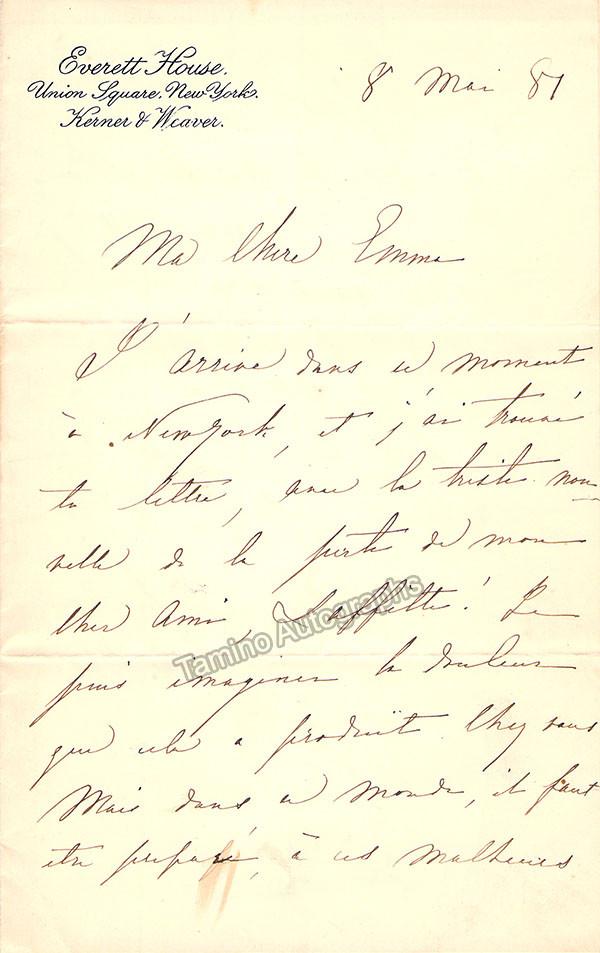 Everett House.
Union Square, New York.
Kerner & Weaver.
8 Mai 81
Ma chere Emma
J'arrive dans ce moment
à New York, et j'ai trouvé
ta lettre, avec la triste nou-
velle de la perte de mon
cher Ami, Laffitte! Je
puis imaginer la douleur
que cela a produit chez vous
Mais dans ce monde, il faut
etre preparé, à ces malheurs
Tamino Autographs